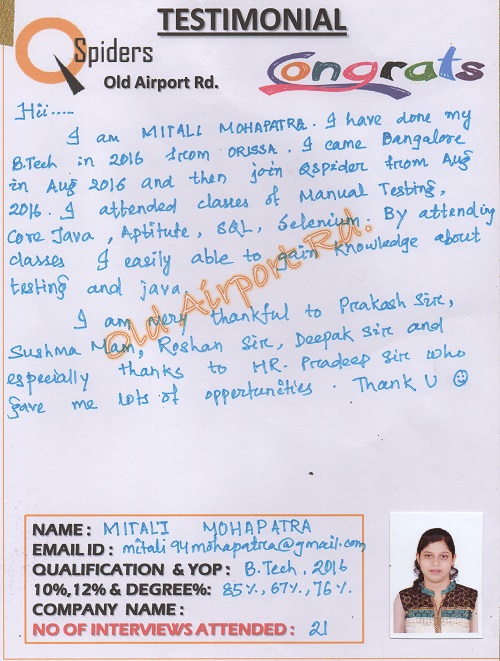 TESTIMONIAL
QSpiders
Old Airport Rd.
Congrats
Hii.....
I am MITALI MOHAPATRA. I have done my
B.Tech in 2016 from ORISSA. I came Bangalore
in Aug 2016 and then join QSpider from Aug
2016. I attended classes of Manual Testing,
Core Java, Aptitute, SQL, Selenium. By attending
classes I easily able to gain knowledge about
testing and java.
I am very thankful to Prakash Sir,
Sushma Mam, Roshan Sir, Deepak Sir and
especially thanks to MR. Pradeep Sir who
gave me lots of opportunities. Thank U ☺
Old Airport Rd.
NAME : MITALI MOHAPATRA
EMAIL ID : mitali94mohapatra@gmail.com
QUALIFICATION & YOP : B.Tech, 2016
10%,12% & DEGREE%: 85%, 67%, 76%
COMPANY NAME :
NO OF INTERVIEWS ATTENDED : 21